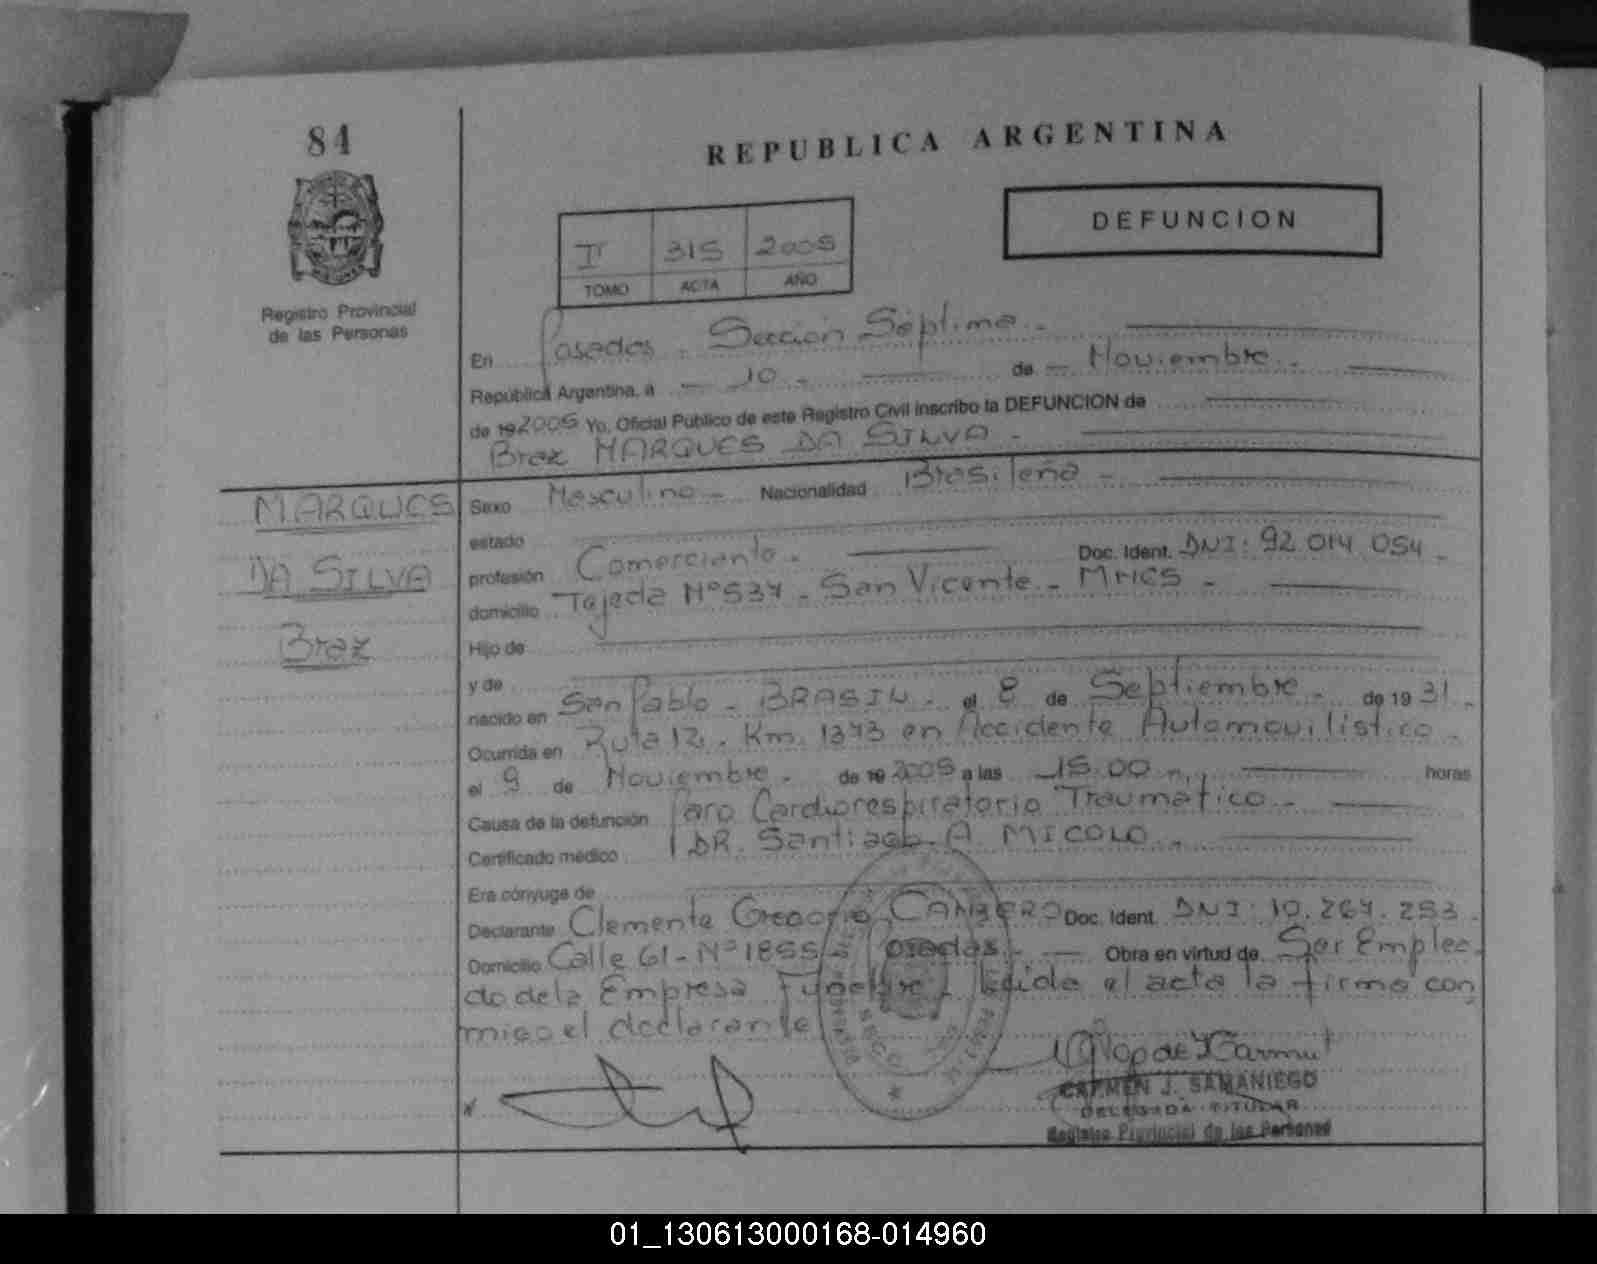 84
REPUBLICA ARGENTINA
Registro Provincial
de las Personas
DEFUNCION
II 315 2005
TOMO ACTA AÑO
En Posadas. Sección Séptima.
República Argentina, a 10 de Noviembre.
de 19 2005 Yo, Oficial Público de este Registro Civil inscribo la DEFUNCION de
Braz MARQUES DA SILVA.
MARQUES
DA SILVA
Braz
Sexo Masculino Nacionalidad Brasileña
estado
profesión Comerciante. Doc. Ident. DNI: 92.014.054
domicilio Tejeda Nº 537. San Vicente. MNES
Hijo de
y de
nacido en San Pablo - BRASIL. el 8 de Septiembre. de 19 31.
Ocurrida en Ruta 12. Km. 1343 en Accidente Automovilístico.
el 9 de Noviembre. de 19 2005 a las 15:00 horas
Causa de la defunción Paro Cardiorespiratorio Traumatico.
Certificado médico DR. Santiago A. MICOLO.
Era cónyuge de
Declarante Clemente Gregorio CANBERO Doc. Ident. DNI: 10.267.253.
Domicilio Calle 61 - Nº 1855 - Posadas. Obra en virtud de Ser Emplea-
do de la Empresa Funebre. Leida el acta la firma con
migo el declarante
CARMEN J. SAMANIEGO
DELEGADA TITULAR
Registro Provincial de las Personas
01_130613000168-014960